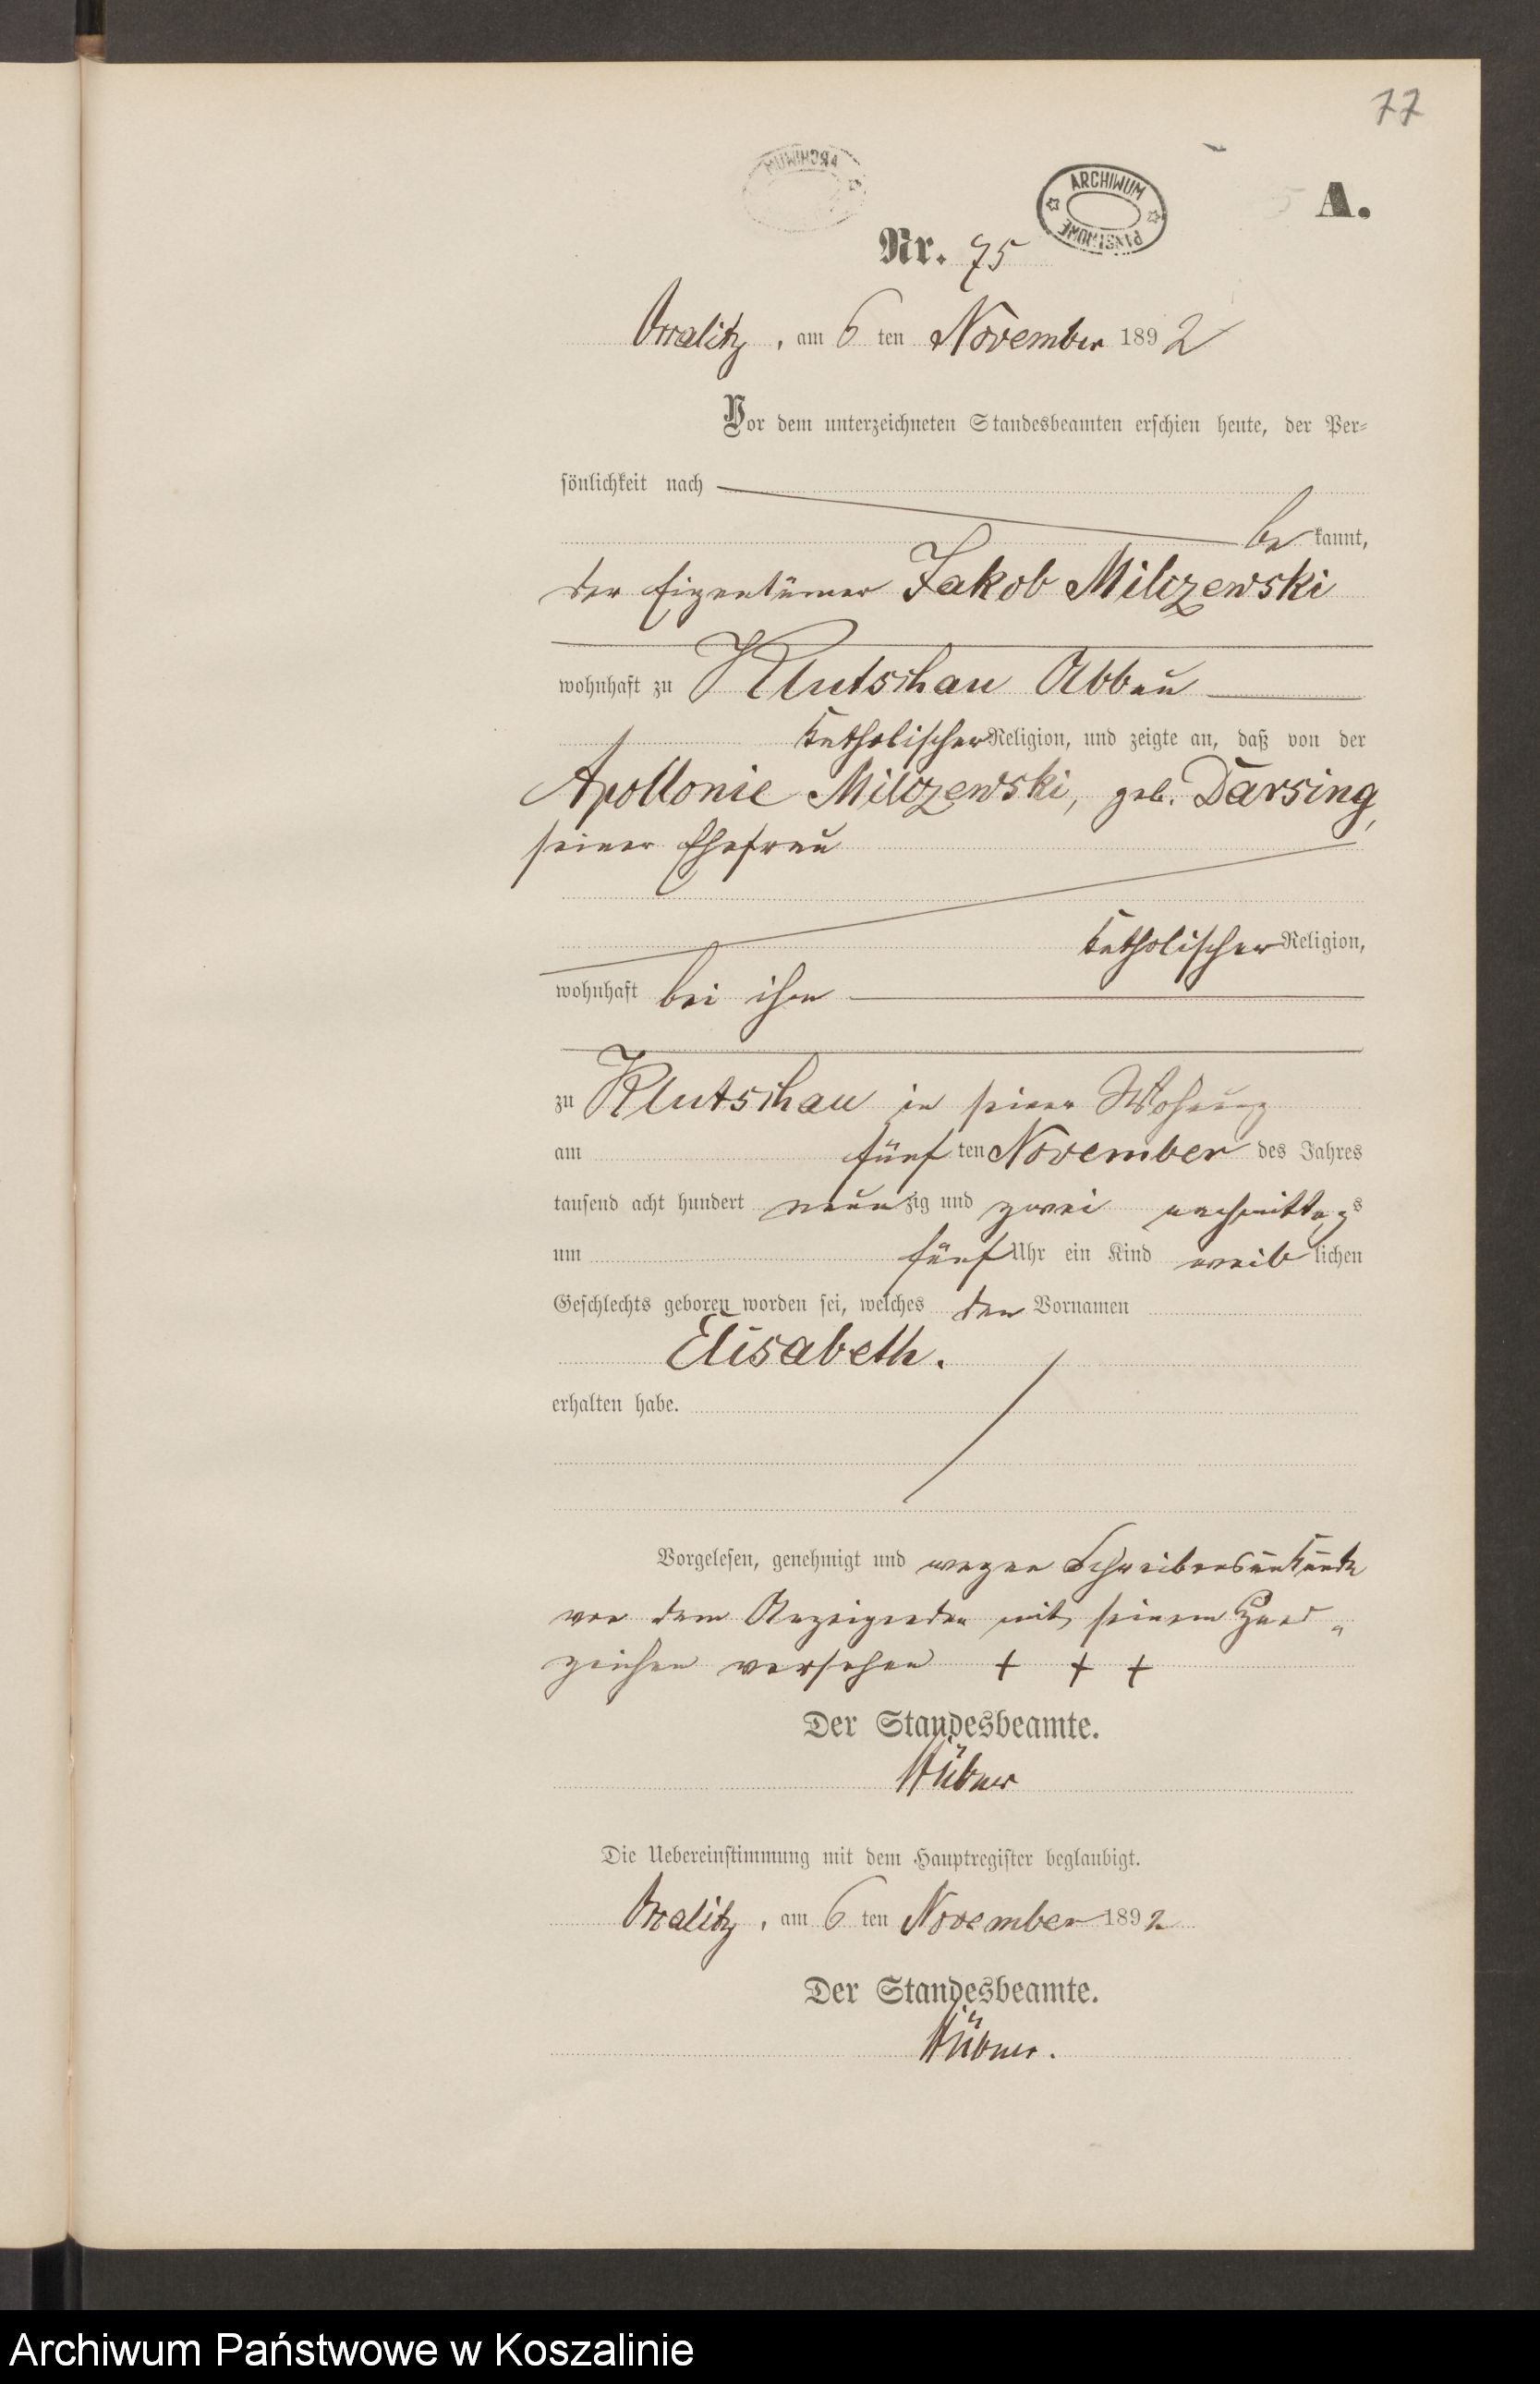 77
ARCHIWUM
ARCHIWUM PAŃSTWOWE
A.
Nr. 75
am 6 ten November 1892
Vor dem unterzeichneten Standesbeamten erschien heute, der Per-
sönlichkeit nach
be kannt,
der Eigentümer Jakob Milczewski
wohnhaft zu Klutschau Abbau
katholischer Religion, und zeigte an, daß von der
Apollonie Milczewski, geb. Darsing,
seiner Ehefrau
katholischer Religion,
wohnhaft bei ihm
zu Klutschau in seiner Wohnung
am fünf ten November des Jahres
tausend acht hundert neunzig und zwei nachmittags
um fünf Uhr ein Kind weib lichen
Geschlechts geboren worden sei, welches den Vornamen
Elisabeth.
erhalten habe.
Vorgelesen, genehmigt und wegen Schreibensunkunde
von dem Anzeigenden mit seinem Hand-
zeichen versehen + + +
Der Standesbeamte.
Hübner
Die Uebereinstimmung mit dem Hauptregister beglaubigt.
am 6 ten November 1892
Der Standesbeamte.
Hübner.
Archiwum Państwowe w Koszalinie